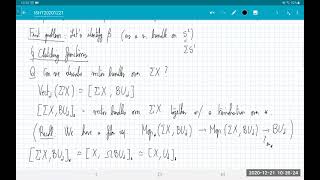 ISHT20201221
First problem: Let's identify β (as a v. bundle on S²)
ΣS¹
§ Clutching functions
Q Can we describe vector bundles over ΣX ?
Vect_d(ΣX) = [ΣX, BU_d]
[ΣX, BU_d]_* = vector bundles over ΣX together w/ a trivialization over *.
(Recall: We have a fiber seq. Map_*(ΣX, BU_d) → Map(ΣX, BU_d) → BU_d)
[ΣX, BU_d]_* = [X, ΩBU_d]_* = [X, U_d]_*
2020-12-21 10:26:24